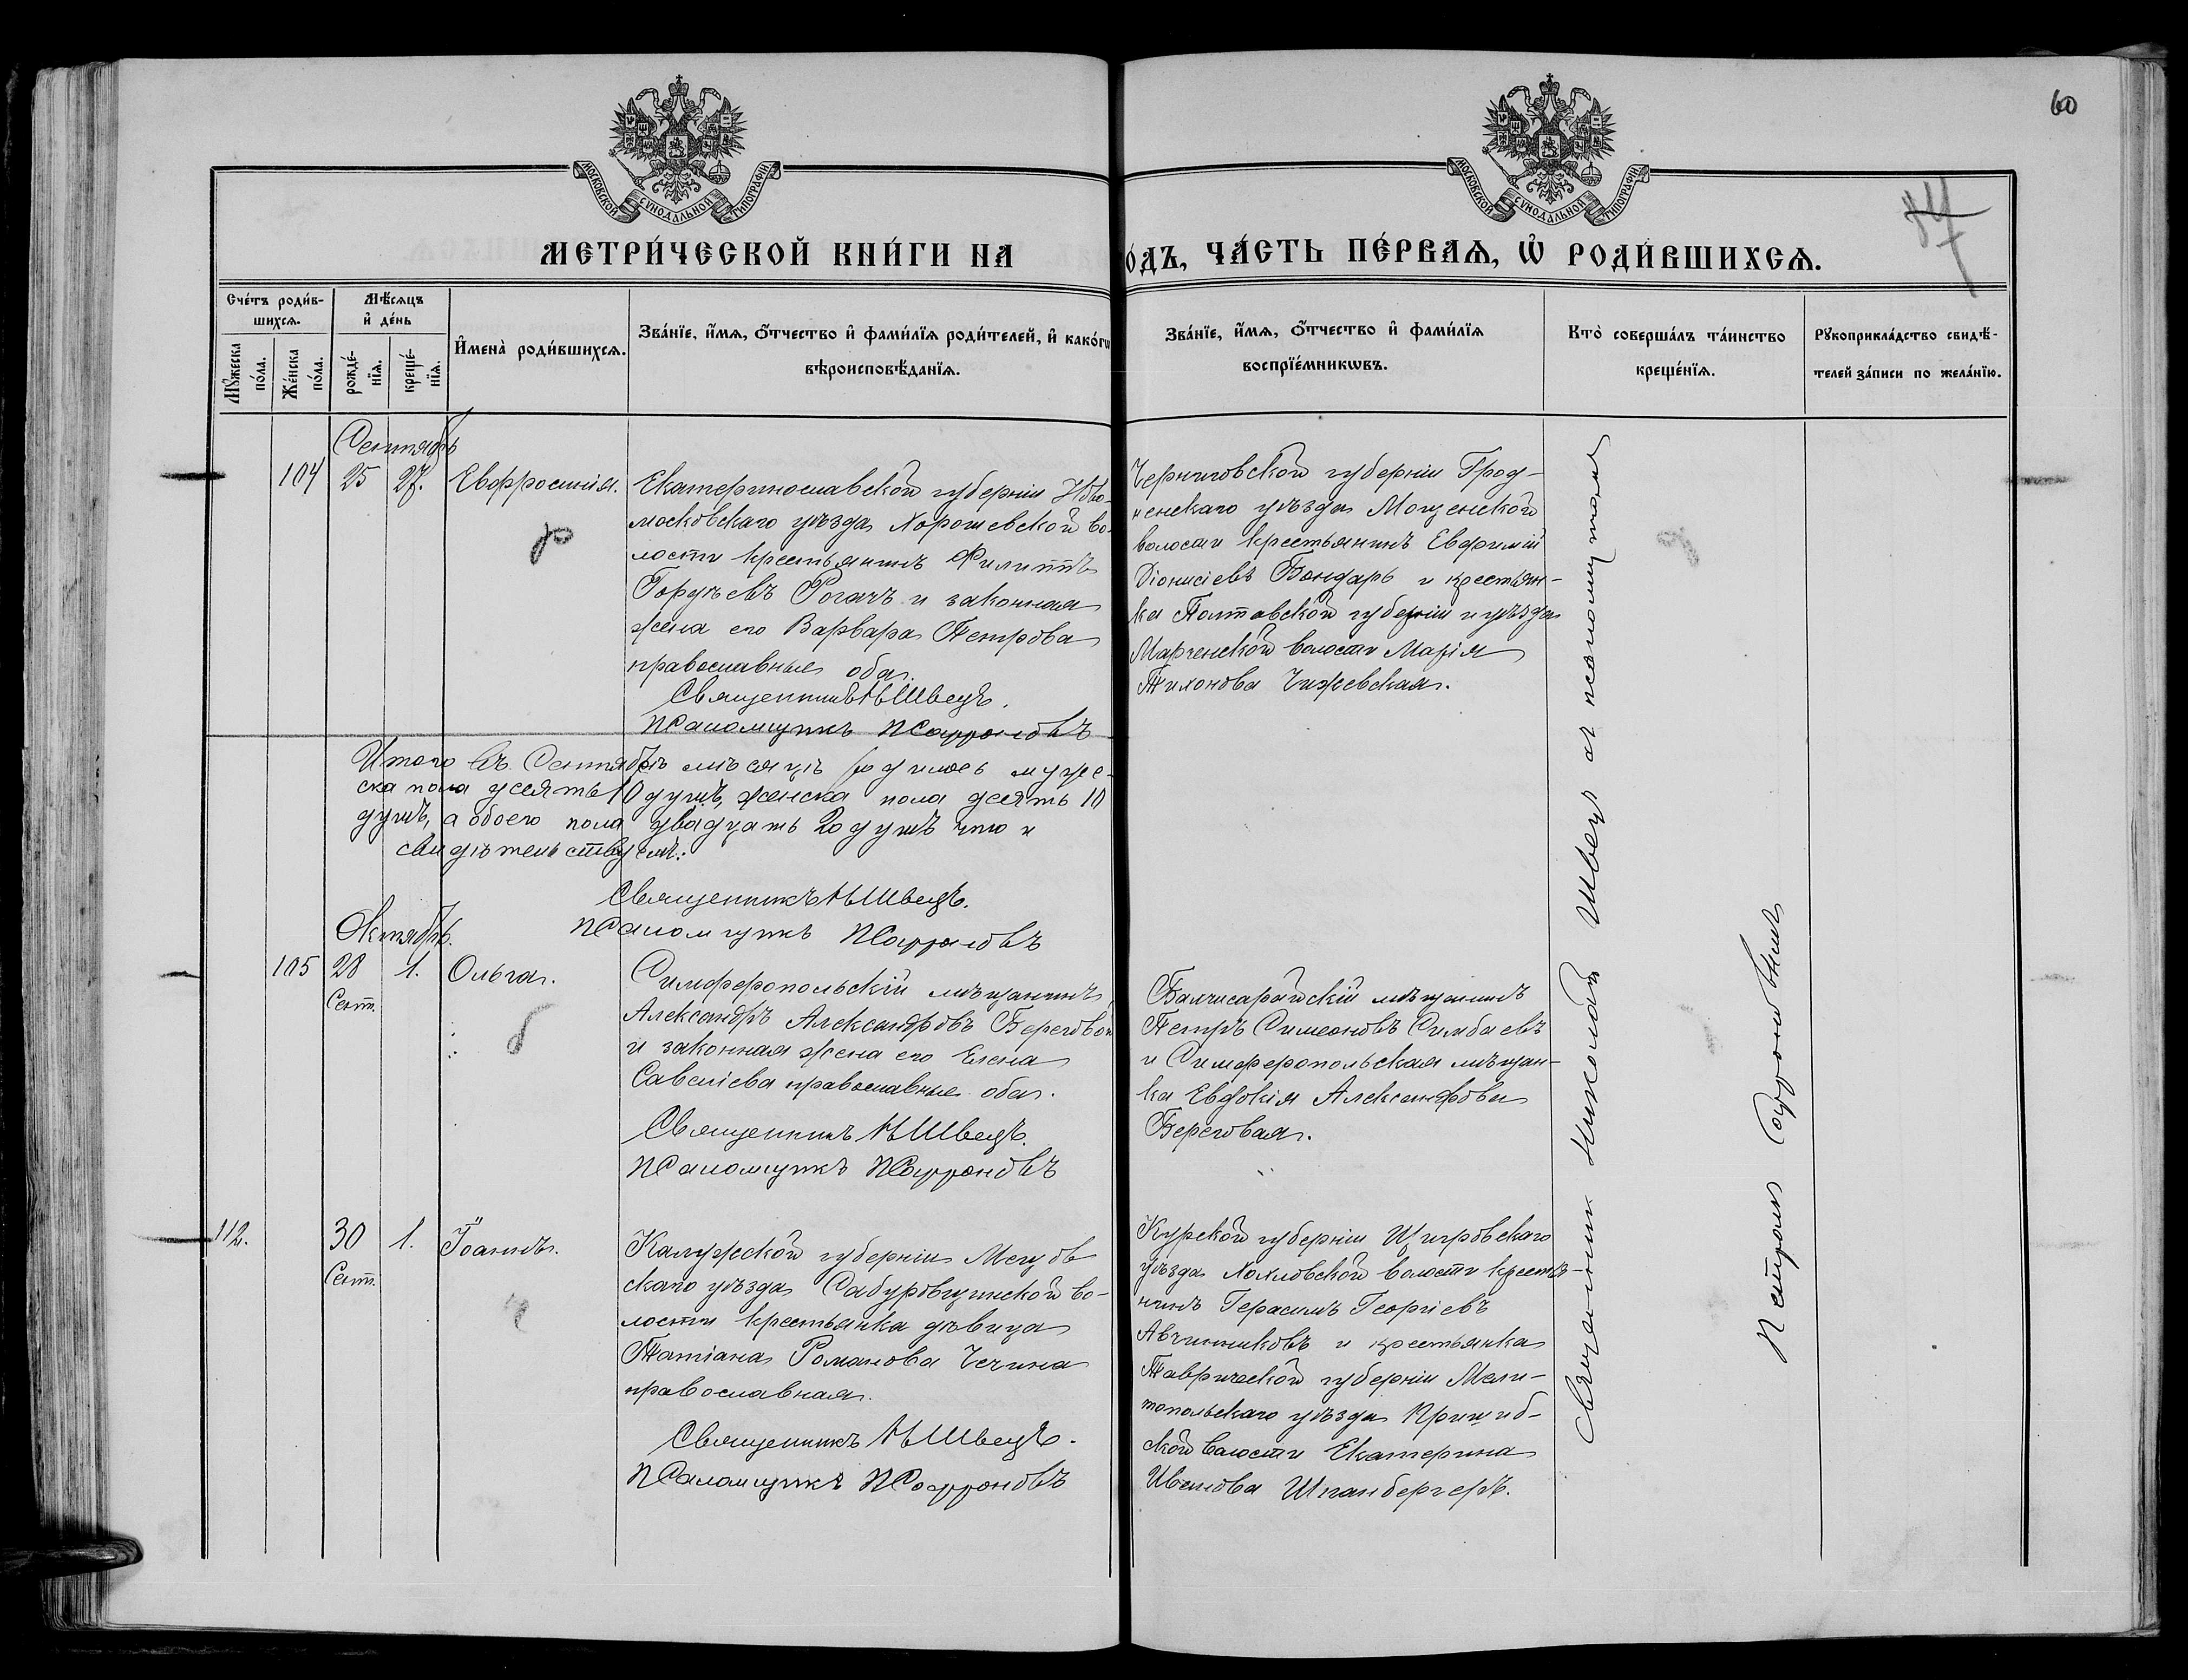 60
МОСКОВСКОЙ СѴНОДАЛЬНОЙ ТИПОГРАФІИ
МОСКОВСКОЙ СѴНОДАЛЬНОЙ ТИПОГРАФІИ
МЕТРИ́ЧЕСКОЙ КНИ́ГИ НА
ОДЪ, ЧА́СТЬ ПЕ́РВАѦ, Ѡ҆ РОДИ́ВШИХСѦ.
Сче́тъ роди́в-
шихсѧ.
Мꙋ́жеска по́ла.
Же́нска по́ла.
Мѣ́сѧцъ
и҆ де́нь
рожде́-
нїѧ.
креще́-
нїѧ.
И҆мена̀ роди́вшихсѧ.
Зва́нїе, и҆́мѧ, ѻ҆́тчество и҆ фами́лїѧ роди́телей, и҆ како́гѡ
вѣроисповѣ́данїѧ.
Зва́нїе, и҆́мѧ, ѻ҆́тчество и҆ фами́лїѧ
воспрїе́мникѡвъ.
Кто̀ соверша́лъ та́инство
креще́нїѧ.
Рꙋкоприкла́дство свидѣ́-
телей за́писи по жела́нїю.
Сентябрь
104 25 27. Евфросинія.
Екатеринославской губерніи Ново-
московскаго уѣзда Хорошевской во-
лости крестьянинъ Филиппъ
Гордѣевъ Рогачъ и законная
жена его Варвара Петрова
православные оба.
Священникъ Н Швецъ.
Псаломщикъ П Софроновъ
Черниговской губерніи Грод-
ненскаго уѣзда Мощенской
волости крестьянинъ Евфимій
Діонисіевъ Бондарь и крестьян-
ка Полтавской губерніи и уѣзда
Марченской волости Марія
Тихонова Чижевская.
Итого въ Сентябрѣ мѣсяцѣ родилось муже-
ска пола десять 10 душъ, женска пола десять 10
душъ, а обоего пола двадцать 20 душъ что и
свидѣтельствуемъ:
Священникъ Н Швецъ.
Псаломщикъ П Софроновъ
Октябрь.
105 28 1. Ольга.
Сент.
Симферопольскій мѣщанинъ
Александръ Александровъ Береговой
и законная жена его Елена
Савеліева православные оба.
Священникъ Н Швецъ.
Псаломщикъ П Софроновъ
Бахчисарайскій мѣщанинъ
Петръ Симеоновъ Симбаевъ
и Симферопольская мѣщан-
ка Евдокія Александрова
Береговая.
112. 30 1. Іоаннъ.
Сент.
Калужской губерніи Мещов
скаго уѣзда Сабуровщинской во-
лости крестьянка дѣвица
Татіана Романова Чечина
православная.
Священникъ Н Швецъ.
Псаломщикъ П Софроновъ
Курской губерніи Щигровскаго
уѣзда Хохловской волости крестья-
нинъ Герасимъ Георгіевъ
Авчинниковъ и крестьянка
Таврической губерніи Мели-
топольскаго уѣзда Пришиб-
ской волости Екатерина
Иванова Шпанбергеръ.
Священникъ Николай Швецъ съ псаломщикомъ
Петромъ Софроновымъ